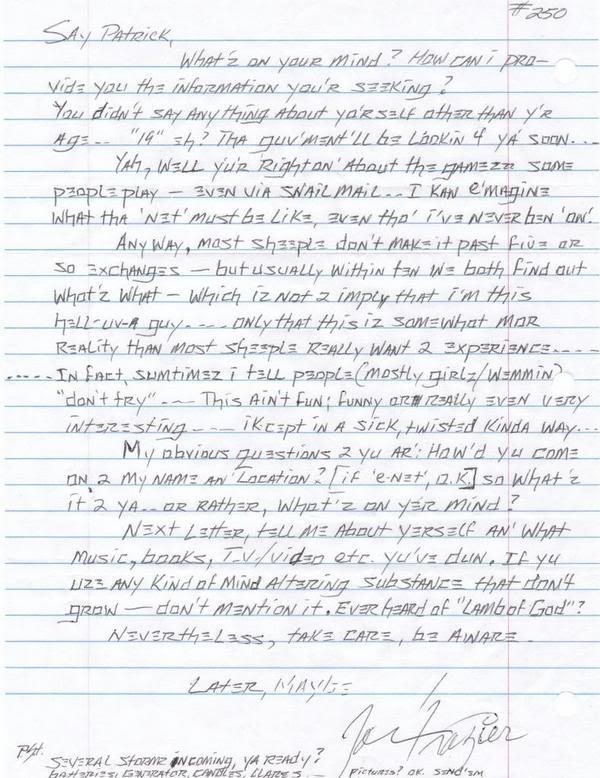 #250
SAY PATRICK,
WHAT'Z ON YOUR MIND? HOW CAN i PRO-
VIDE YOU THE INFORMATION YOU'R SEEKING?
YOU DIDN'T SAY ANYTHING ABOUT YO'RSELF OTHER THAN Y'R
AGE... "19" EH? THA GUV'MENT'LL BE LOOKIN 4 YA SOON...
YAH, WELL YU'R 'RIGHT ON' ABOUT THE GAMEZZ SOME
PEOPLE PLAY — EVEN VIA SNAIL MAIL... I KAN E'MAGINE
WHAT THA 'NET' MUST BE LIKE, EVEN THO' I'VE NEVER BEN 'ON'.
ANYWAY, MOST SHEEPLE DON'T MAKE IT PAST FIVE OR
SO EXCHANGES — BUT USUALLY WITHIN TEN WE BOTH FIND OUT
WHAT'Z WHAT — WHICH IZ NOT 2 IMPLY THAT I'M THIS
HELL-UV-A GUY.... ONLY THAT THIS IZ SOMEWHAT MOR
REALITY THAN MOST SHEEPLE REALLY WANT 2 EXPERIENCE.....
.....IN FACT, SUMTIMEZ i TELL PEOPLE (MOSTLY GIRLZ/WEMMIN)
"DON'T TRY" ---- THIS AIN'T FUN; FUNNY OR REALLY EVEN VERY
INTERESTING ---- IKCEPT IN A SICK, TWISTED KINDA WAY...
MY OBVIOUS QUESTIONS 2 YU AR: HOW'D YU COME
ON 2 MY NAME AN' LOCATION? [IF 'E-NET', O.K.] SO WHAT'Z
IT 2 YA... OR RATHER, WHAT'Z ON YER MIND?
NEXT LETTER, TELL ME ABOUT YERSELF AN' WHAT
MUSIC, BOOKS, T.V./VIDEO ETC. YU'VE DUN. IF YU
UZE ANY KIND OF MIND ALTERING SUBSTANCE THAT DON'T
GROW — DON'T MENTION IT. EVER HEARD OF "LAMB OF GOD"?
NEVERTHELESS, TAKE CARE, BE AWARE.
LATER, MAYBE
Joe Frazier
SEVERAL STORMZ INCOMING, YA READY?
BATTERIES, GENERATOR, CANDLES, FLARES...
PICTURES? OK. SEND'EM